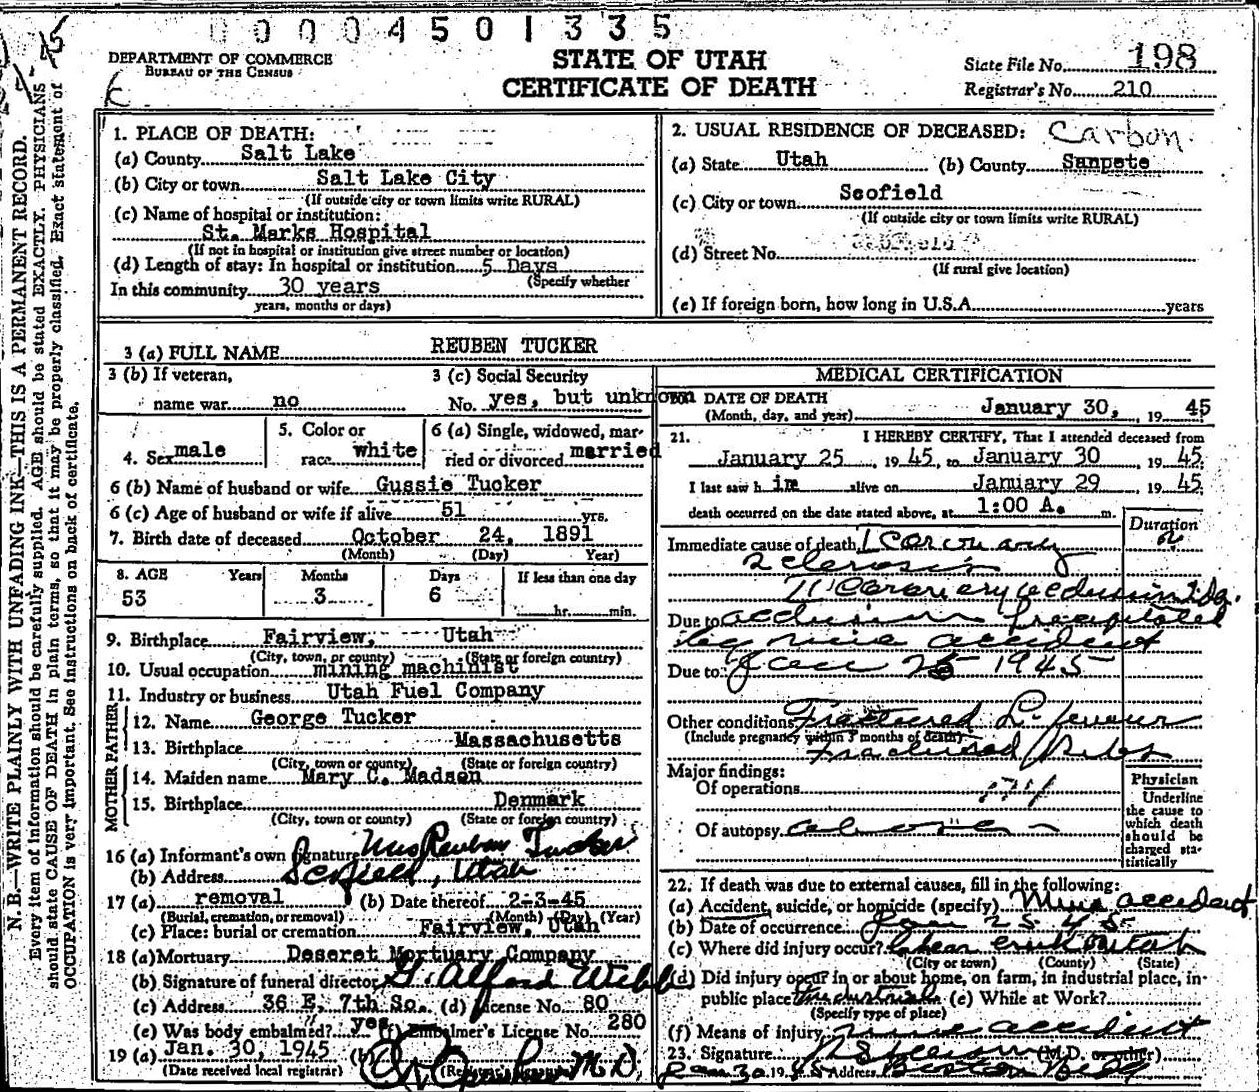 0004501335
DEPARTMENT OF COMMERCE
BUREAU OF THE CENSUS
STATE OF UTAH
CERTIFICATE OF DEATH
State File No. 198
Registrar's No. 210
N. B.—WRITE PLAINLY WITH UNFADING INK—THIS IS A PERMANENT RECORD.
Every item of information should be carefully supplied. AGE should be stated EXACTLY. PHYSICIANS
should state CAUSE OF DEATH in plain terms, so that it may be properly classified. Exact statement of
OCCUPATION is very important. See instructions on back of certificate.
1. PLACE OF DEATH:
(a) County Salt Lake
(b) City or town Salt Lake City
(If outside city or town limits write RURAL)
(c) Name of hospital or institution:
St. Marks Hospital
(If not in hospital or institution give street number or location)
(d) Length of stay: In hospital or institution 5 Days
(Specify whether
In this community 30 years
years, months or days)
2. USUAL RESIDENCE OF DECEASED: Carbon
(a) State Utah (b) County Sanpete
(c) City or town Scofield
(If outside city or town limits write RURAL)
(d) Street No.
(If rural give location)
(e) If foreign born, how long in U.S.A. years
3 (a) FULL NAME REUBEN TUCKER
3 (b) If veteran,
name war no
3 (c) Social Security
No. yes, but unknown
4. Sex male
5. Color or
race white
6 (a) Single, widowed, mar-
ried or divorced married
6 (b) Name of husband or wife Gussie Tucker
6 (c) Age of husband or wife if alive 51 yrs.
7. Birth date of deceased October 24, 1891
(Month) (Day) Year)
8. AGE Years Months Days If less than one day
53 3 6 hr. min.
9. Birthplace Fairview, Utah
(City, town, or county) (State or foreign country)
10. Usual occupation mining machinist
11. Industry or business Utah Fuel Company
FATHER
12. Name George Tucker
13. Birthplace Massachusetts
(City, town or county) (State or foreign country)
MOTHER
14. Maiden name Mary C. Madsen
15. Birthplace Denmark
(City, town or county) (State or foreign country)
16 (a) Informant's own signature Mrs Reuben Tucker
(b) Address Scofield, Utah
17 (a) removal (b) Date thereof 2-3-45
(Burial, cremation, or removal) (Month) (Day) (Year)
(c) Place: burial or cremation Fairview, Utah
18 (a) Mortuary Deseret Mortuary Company
(b) Signature of funeral director G. Alford Webb
(c) Address 36 E. 7th So. (d) License No. 80
(e) Was body embalmed? yes (f) Embalmer's License No. 280
19 (a) Jan. 30, 1945 (b) M.D.
(Date received local registrar) (Registrar's
MEDICAL CERTIFICATION
DATE OF DEATH
(Month, day, and year) January 30, 19 45
21. I HEREBY CERTIFY, That I attended deceased from
January 25, 19 45, to January 30 19 45
I last saw h im alive on January 29 19 45
death occurred on the date stated above, at 1:00 A. m.
Duration
Immediate cause of death I Coronary ?
Sclerosis
II Coronary occlusion 1 da.
Due to occlusion precipitated
by mine accident
Due to: Jan 25 1945
Other conditions Fractured L. femur
(Include pregnancy within 3 months of death)
Fractured Ribs
Major findings:
Of operations
Of autopsy above
Physician
Underline
the cause to
which death
should be
charged sta-
tistically
22. If death was due to external causes, fill in the following:
(a) Accident, suicide, or homicide (specify) Mine accident
(b) Date of occurrence Jan 25 45
(c) Where did injury occur? Clear creek Utah
(City or town) (County) (State)
(d) Did injury occur in or about home, on farm, in industrial place, in
public place? Industrial (e) While at Work?
(Specify type of place)
(f) Means of injury mine accident
23. Signature (M.D. or other)
Jan 30 19 45 Address Boston Bldg